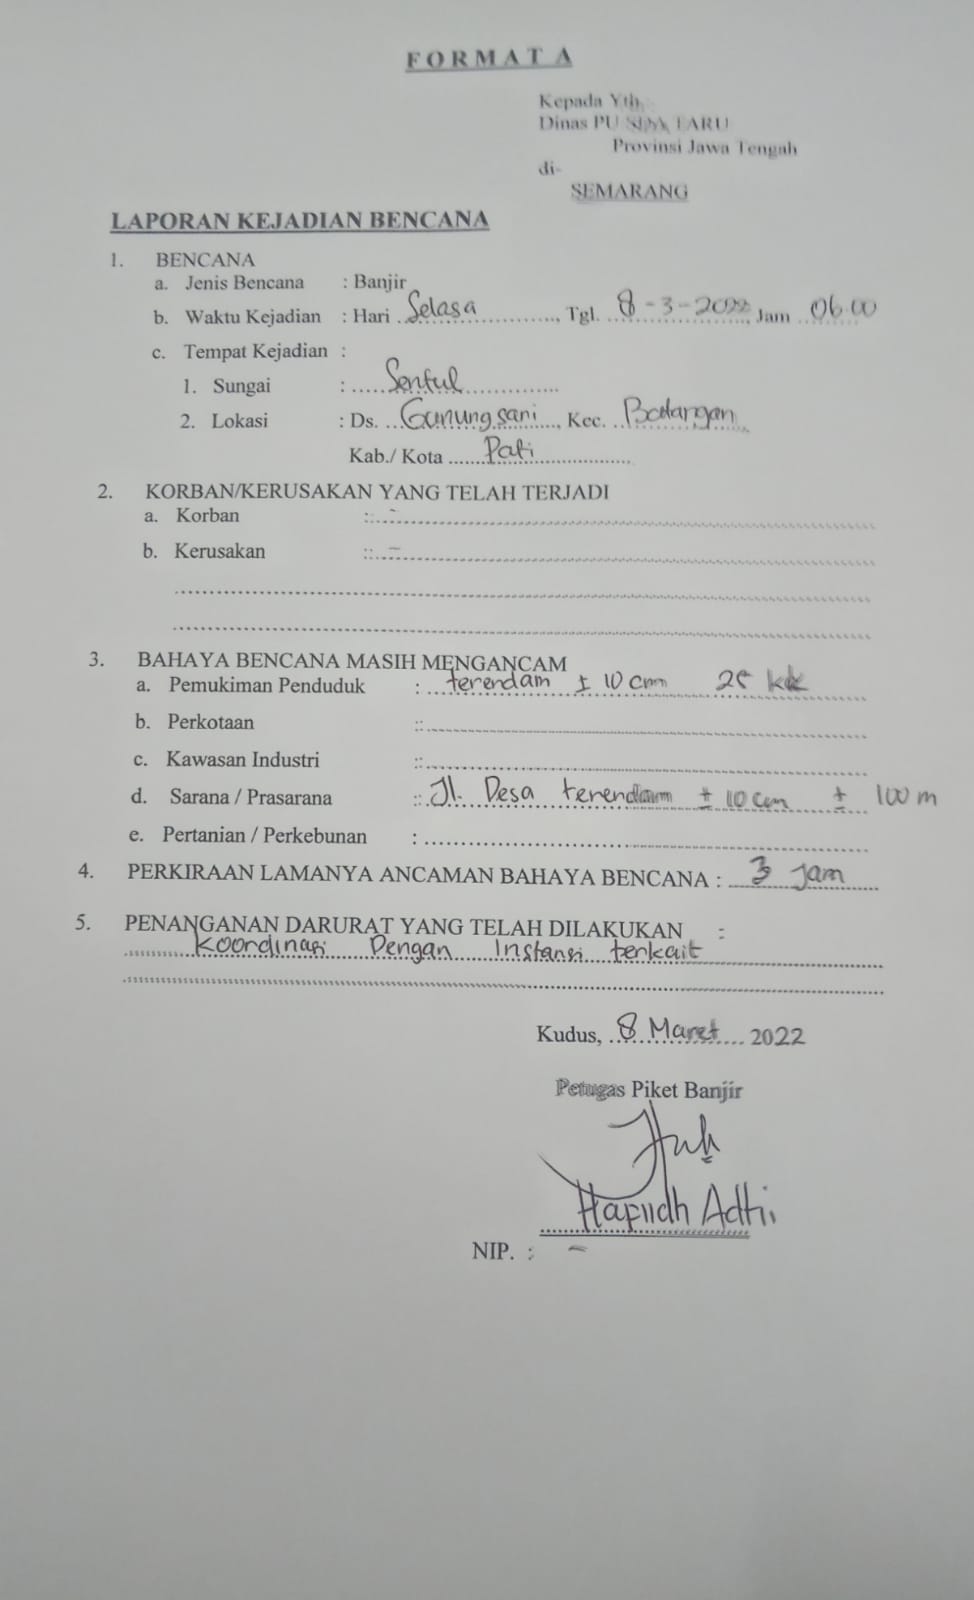 FORMAT A
Kepada Yth.
Dinas PU SDA TARU
Provinsi Jawa Tengah
di-
SEMARANG
LAPORAN KEJADIAN BENCANA
1. BENCANA
a. Jenis Bencana : Banjir
b. Waktu Kejadian : Hari Selasa, Tgl. 8-3-2022, Jam 06.00
c. Tempat Kejadian :
1. Sungai : Sentul
2. Lokasi : Ds. Gunungsari, Kec. Batangan
Kab./ Kota Pati
2. KORBAN/KERUSAKAN YANG TELAH TERJADI
a. Korban : -
b. Kerusakan :: -
3. BAHAYA BENCANA MASIH MENGANCAM
a. Pemukiman Penduduk : terendam ± 10 cm 25 kk
b. Perkotaan ::
c. Kawasan Industri ::
d. Sarana / Prasarana :: Jl. Desa terendam ± 10 cm ± 100 m
e. Pertanian / Perkebunan :
4. PERKIRAAN LAMANYA ANCAMAN BAHAYA BENCANA : 3 Jam
5. PENANGANAN DARURAT YANG TELAH DILAKUKAN :
Koordinasi Dengan Instansi terkait
Kudus, 8 Maret 2022
Petugas Piket Banjir
Hafiidh Adhi
NIP. : -